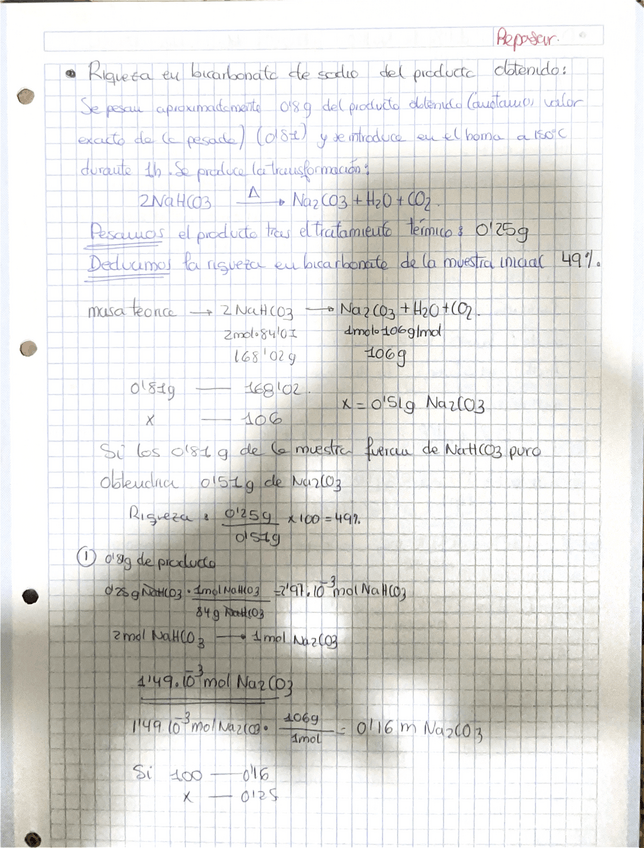 Repasar.
• Riqueza en bicarbonato de sodio del producto obtenido:
Se pesan aproximadamente 0'8g del producto obtenido (anotamos valor
exacto de la pesada) (0'81) y se introduce en el horno a 150ºC
durante 1h. Se produce la transformación:
2NaHCO3 —Δ→ Na2CO3 + H2O + CO2.
Pesamos el producto tras el tratamiento térmico: 0'25g
Deducimos la riqueza en bicarbonato de la muestra inicial 49%.
masa teorica → 2NaHCO3 → Na2CO3 + H2O + CO2.
2mol·84'01 1mol·106g/mol
168'02g 106g
0'81g — 168'02.
x — 106
x = 0'51g Na2CO3
Si los 0'81g de la muestra fueran de NaHCO3 puro
obtendria 0'51g de Na2CO3
Riqueza: 0'25g / 0'51g x100 = 49%.
① 0'8g de producto
0'25g NaHCO3 · 1mol NaHCO3 / 84g NaHCO3 = 2'97.10^-3 mol NaHCO3
2mol NaHCO3 → 1mol Na2CO3
1'49.10^-3 mol Na2CO3
1'49 10^-3 mol Na2CO3 · 106g / 1mol = 0'16 m Na2CO3
Si 100 — 0'16
x — 0'25